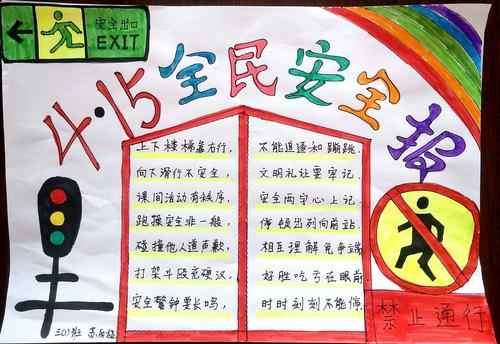 安全出口
EXIT
4·15全民安全报
上下楼梯靠右行,
向下滑行不安全,
课间活动有秩序,
跑操安全非一般,
碰撞他人道声歉,
打架斗殴充硬汉,
安全警钟要长鸣,
不能追逐和蹦跳.
文明礼让要牢记.
安全两字心上记.
停顿出列向前站.
相互理解免争端
好胜吃亏在眼前
时时刻刻不能停.
禁止通行